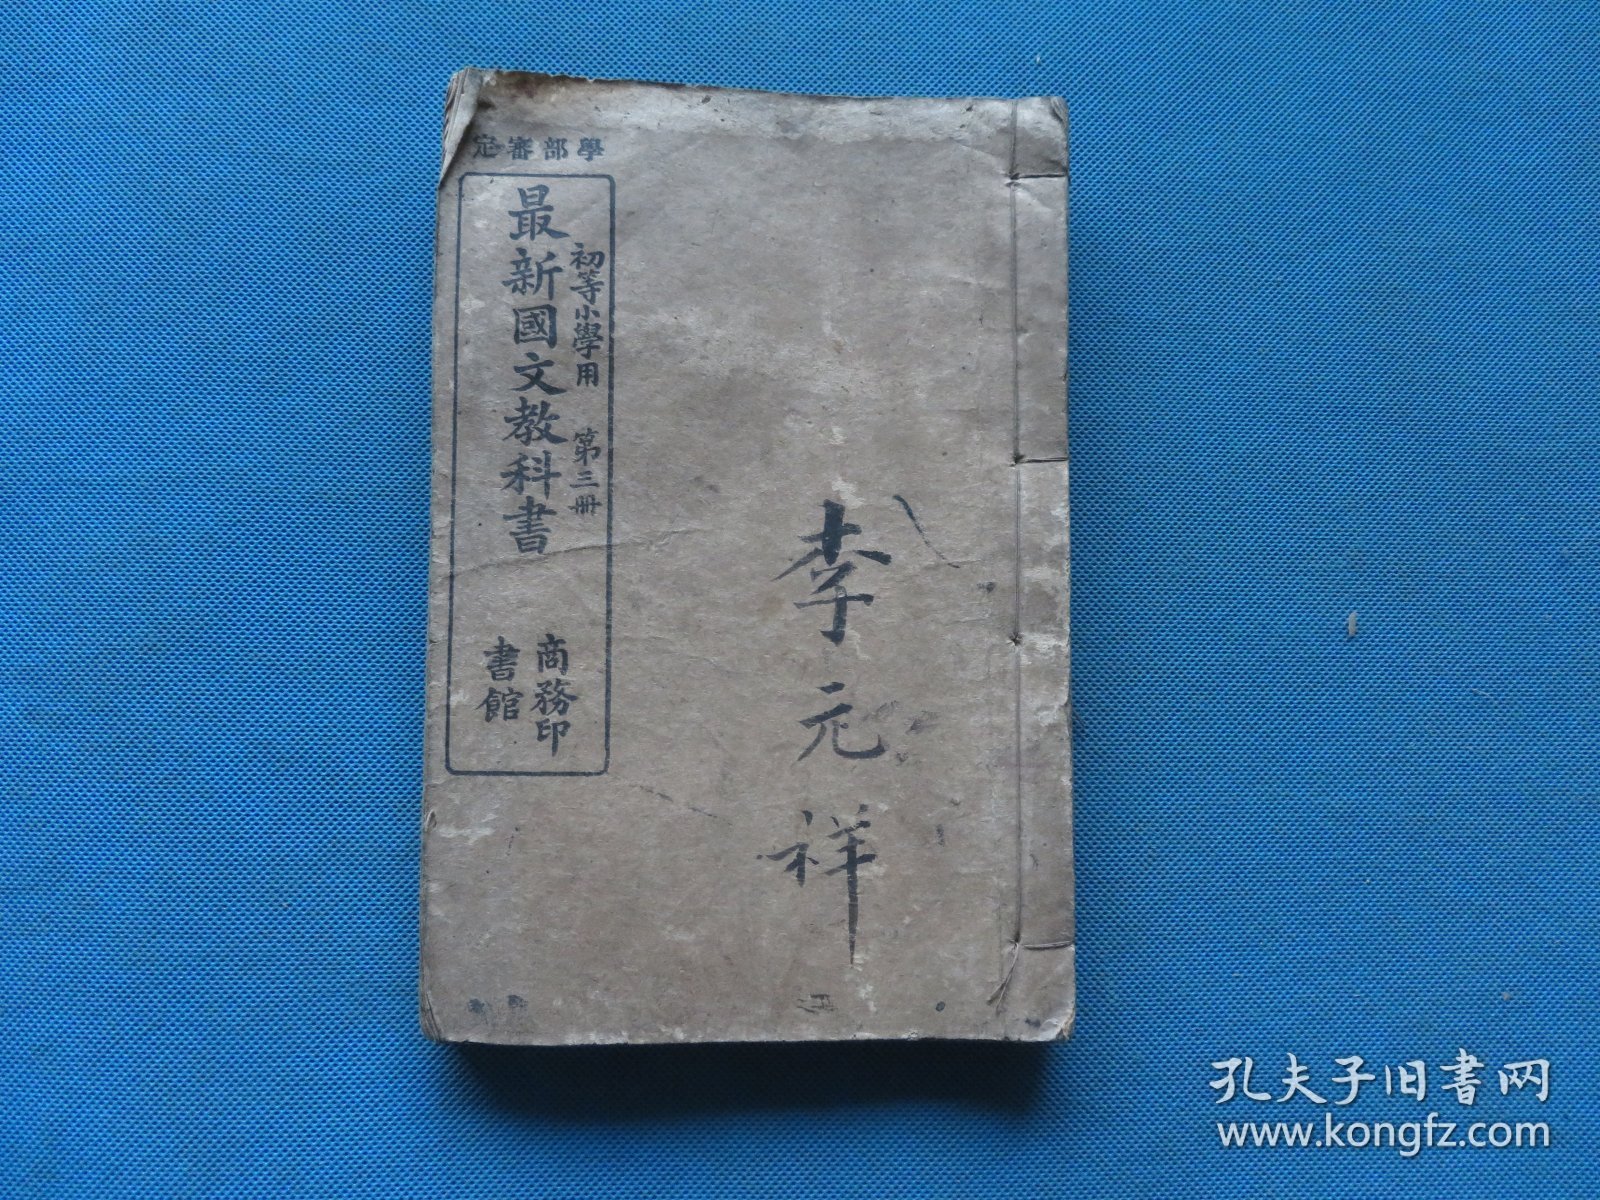 學部審定
初等小學用 第三冊
最新國文教科書
商務印
書館
李元祥
孔夫子旧书网
www.kongfz.com